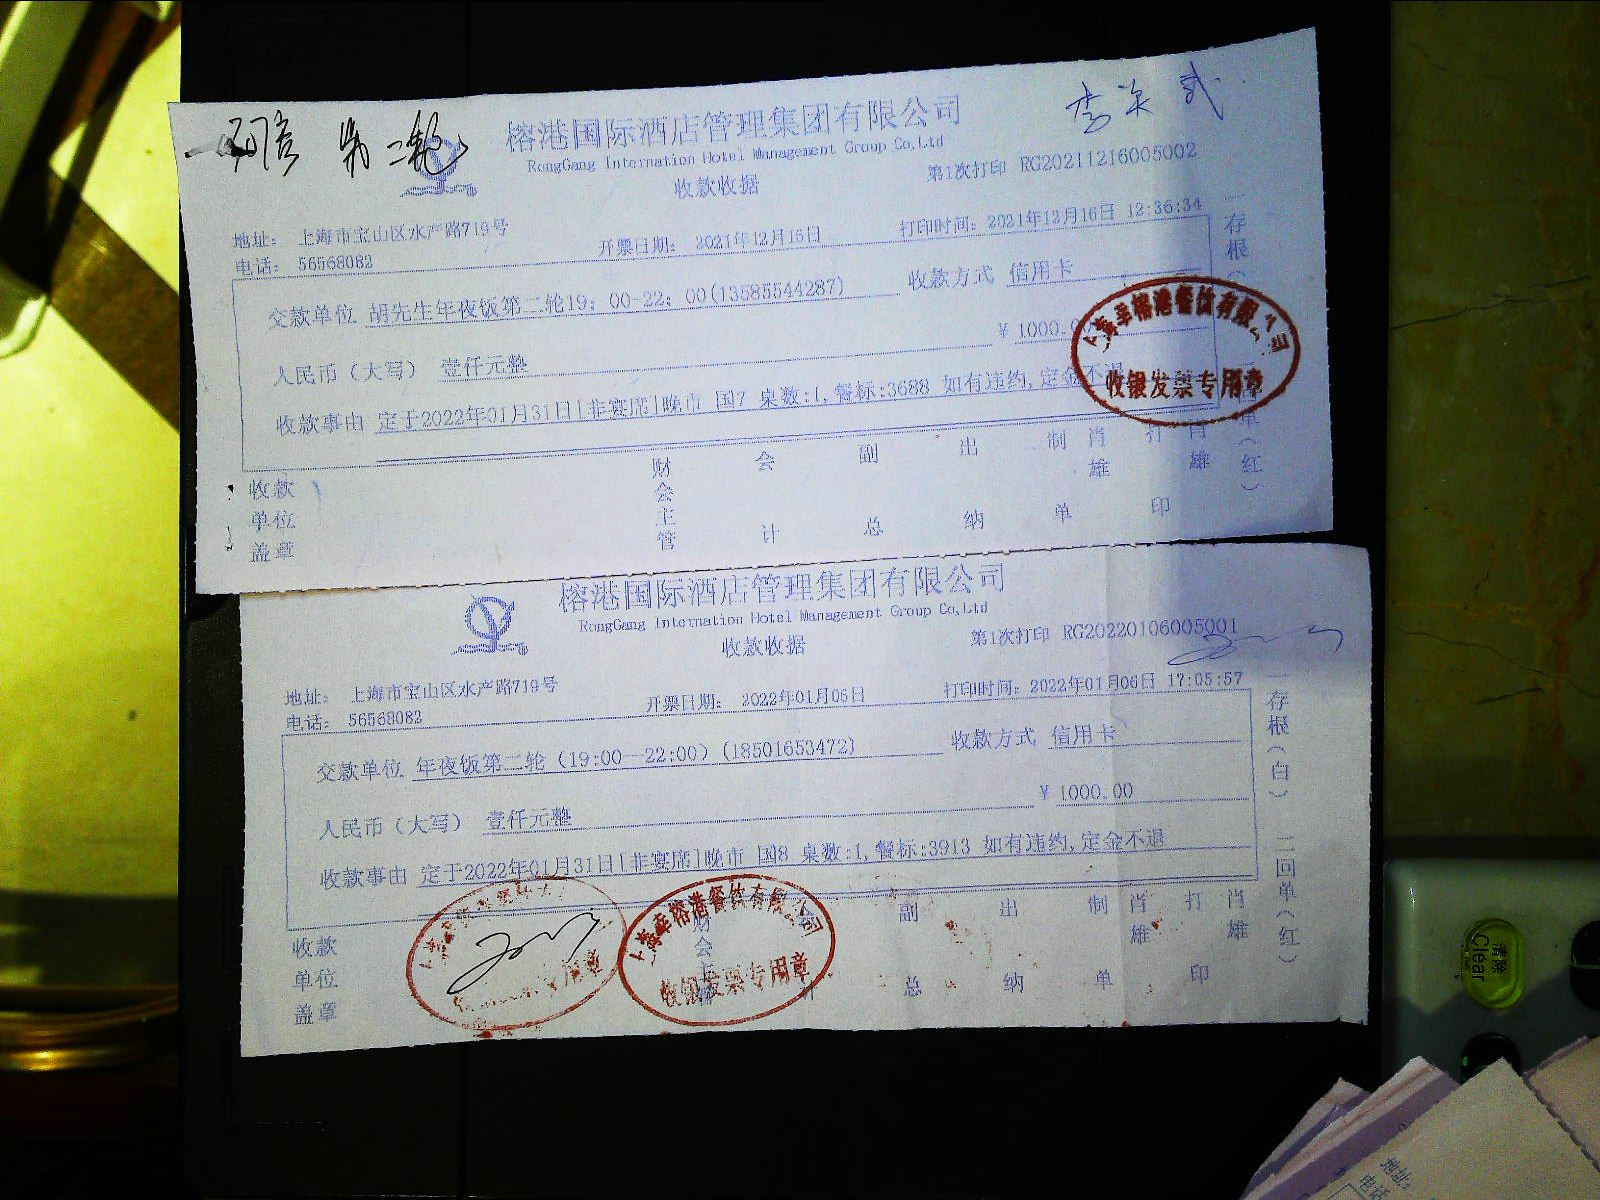 第二轮
榕港国际酒店管理集团有限公司
RongGang Internation Hotel Management Group Co,Ltd
收款收据
第1次打印 RG20211216005002
地址： 上海市宝山区水产路719号
电话： 56568082
开票日期： 2021年12月16日
打印时间：2021年12月16日 12:36:34
交款单位 胡先生年夜饭第二轮19：00-22：00(13585544287)
收款方式 信用卡
人民币（大写） 壹仟元整
¥ 1000.
收款事由 定于2022年01月31日[非宴席]晚市 国7 桌数:1,餐标:3688 如有违约,定金不退
收款单位盖章
财会主管
会计
副总
出纳
制单 肖雄
打印 肖雄
存根（
单（红）
餐饮有限公司
收银发票专用章
榕港国际酒店管理集团有限公司
RongGang Internation Hotel Management Group Co,Ltd
收款收据
第1次打印 RG20220106005001
地址： 上海市宝山区水产路719号
电话： 56568082
开票日期： 2022年01月06日
打印时间：2022年01月06日 17:05:57
交款单位 年夜饭第二轮（19:00—22:00）(18501653472)
收款方式 信用卡
人民币（大写） 壹仟元整
¥ 1000.00
收款事由 定于2022年01月31日[非宴席]晚市 国8 桌数:1,餐标:3913 如有违约,定金不退
收款单位盖章
财会主
计
副总
出纳
制单 肖雄
打印 肖雄
一存根（白） 二回单（红）
专用章
餐饮有限公司
收银发票专用章
清除
Clear
地址：
电话